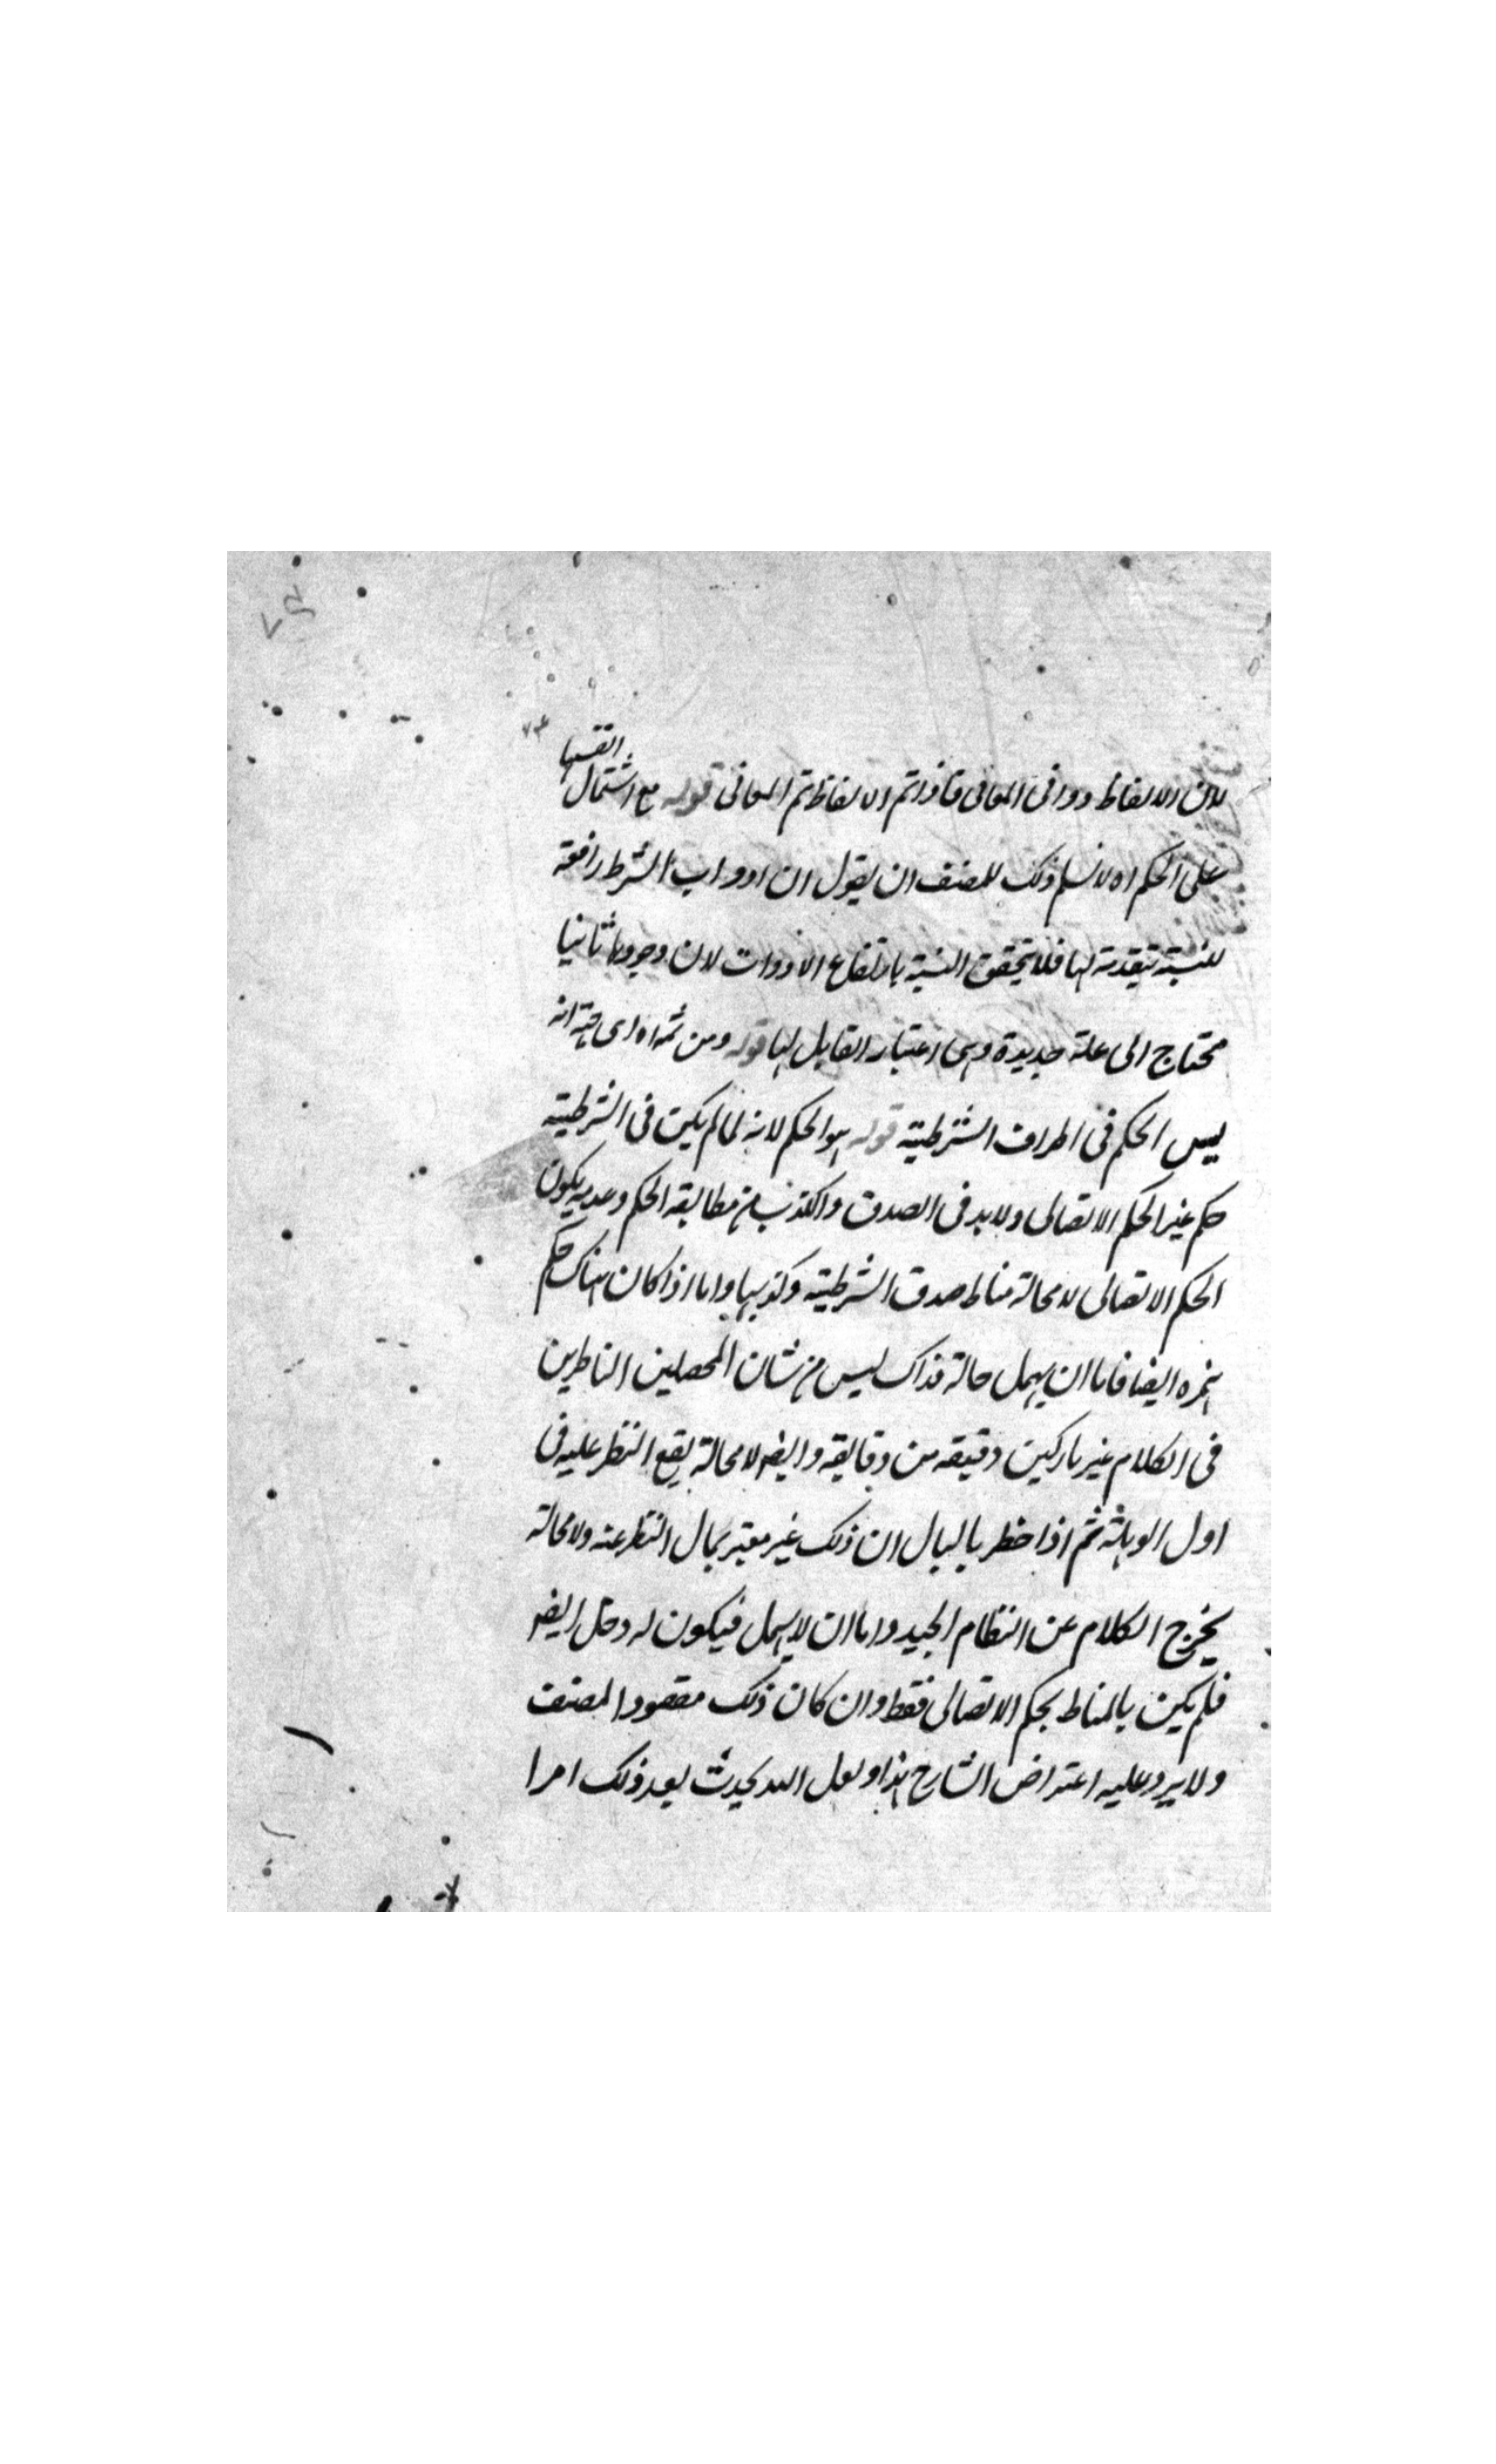 لان الالفاظ دوافى المعانى فاذا تم الالفاظ تم المعانى قوله مع اشتمال القضيا
على الحكم اه لا نسلم ذلك للمصنف ان يقول ان ادوات الشرط رافعة
للنسبة فلا يتحقق النسبة بارتفاع الادوات لان وجودها ثانيا
محتاج الى علة جديدة وهى اعتبار القايل لها قوله ومن ثمه اه اى
ليس الحكم فى اطراف الشرطية قوله هو الحكم لانه لما لم يكن فى الشرطية
حكم غير الحكم الاتصالى ولا بد فى الصدق والكذب من مطابقة الحكم وعدمه يكون
الحكم الاتصالى لا محالة مناط صدق الشرطية وكذبها واما اذا كان هناك حكم
غيره ايضا فاما ان يهمل حاله فذاك ليس من شان المحصلين الناظرين
فى الكلام غير تاركين دقيقة من دقايقه وايض لا محالة يقع النظر عليه فى
اول الوهلة ثم اذا خطر بالبال ان ذلك غير معتبر يمال النظر عنه ولا محالة
يخرج الكلام عن النظام الجيد واما ان لا يهمل فيكون له دخل ايض
فلم يكن بالمناط بحكم الاتصالى فقط وان كان ذلك مقصود المصنف
ولا يرد عليه اعتراض الشارح هذا ولعل الله يحدث بعد ذلك امرا